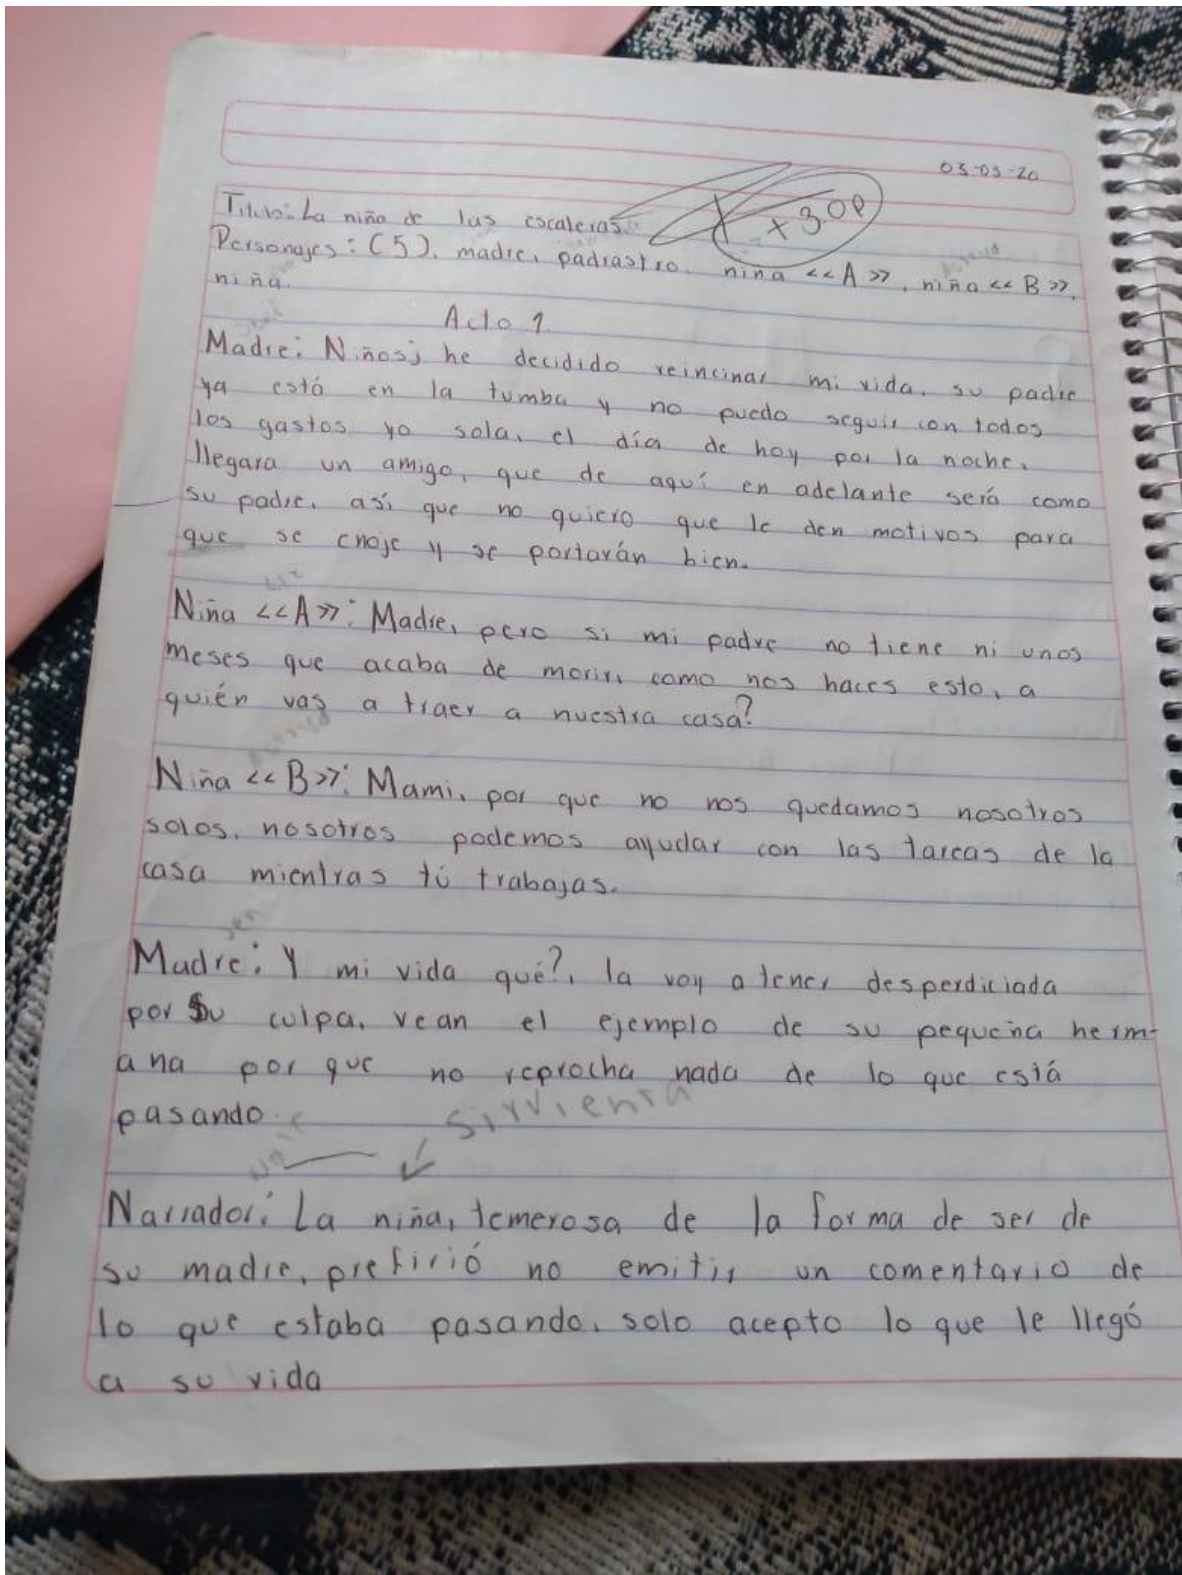 03-03-20
x 3.0p
Titulo: La niña de las escaleras.
Personajes: (5), madre, padrastro, niña <<A>>, niña <<B>>,
niña.
Acto 1.
Madre: Niños; he decidido reincinar mi vida, su padre
ya está en la tumba y no puedo seguir con todos
los gastos yo sola, el día de hoy por la noche,
llegara un amigo, que de aquí en adelante será como
su padre, así que no quiero que le den motivos para
que se enoje y se portarán bien.
Niña <<A>>: Madre, pero si mi padre no tiene ni unos
meses que acaba de morir, como nos haces esto, a
quién vas a traer a nuestra casa?
Astrid
Niña <<B>>: Mami, por que no nos quedamos nosotros
solos, nosotros podemos ayudar con las tareas de la
casa mientras tú trabajas.
Jen
Madre: Y mi vida qué?, la voy a tener desperdiciada
por su culpa, vean el ejemplo de su pequeña herm-
ana por que no reprocha nada de lo que está
pasando.
Sirvienta
Narrador: La niña, temerosa de la forma de ser de
su madre, prefirió no emitir un comentario de
lo que estaba pasando, solo acepto lo que le llegó
a su vida